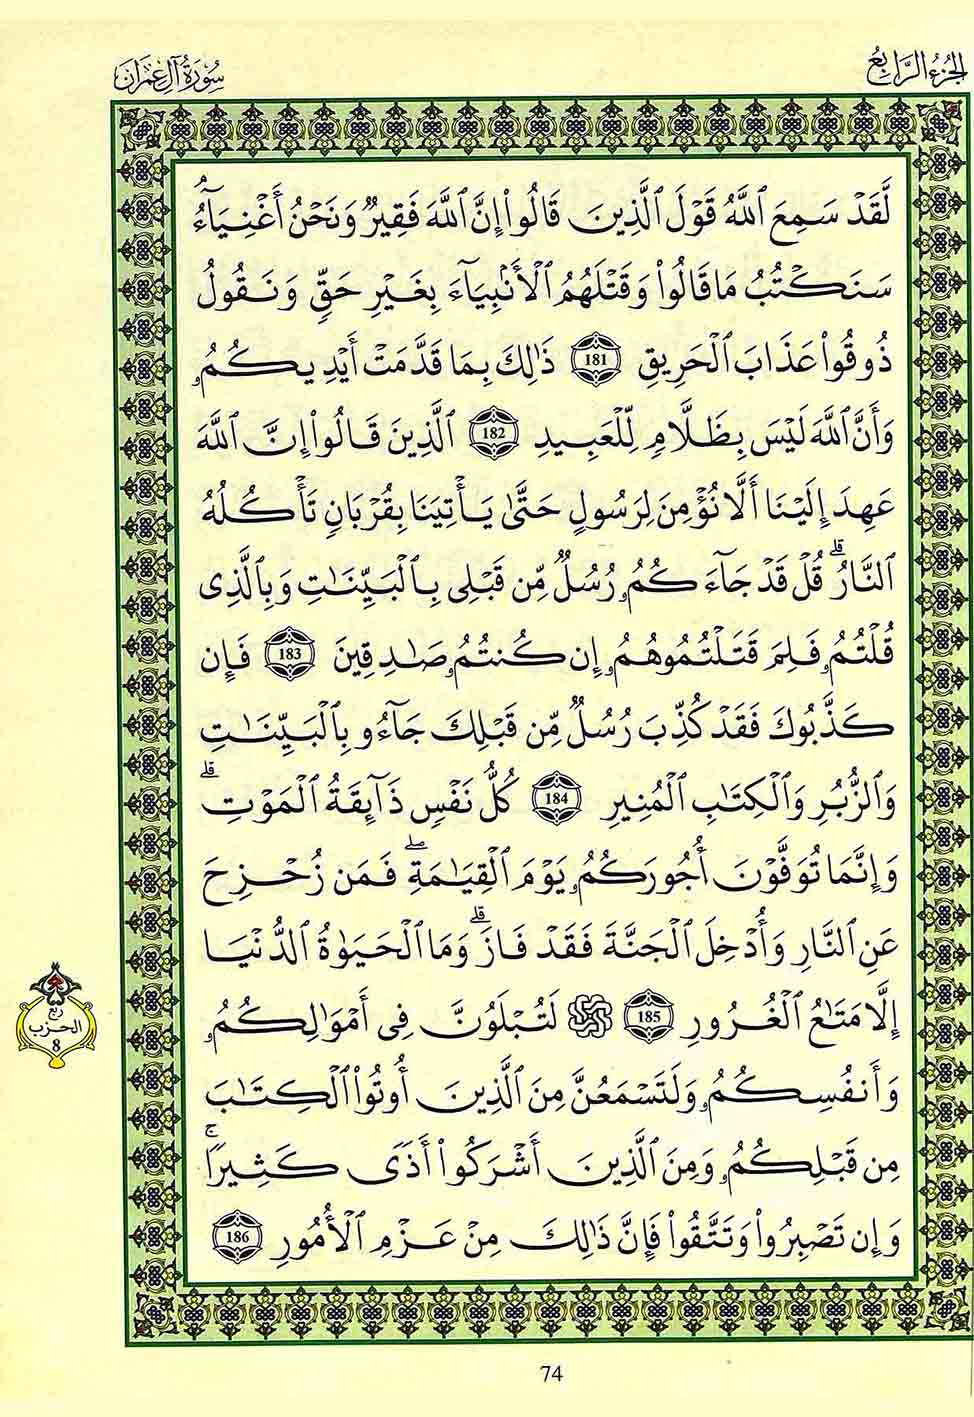 الجزء الرابع
سورة آل عمران
لَّقَدْ سَمِعَ ٱللَّهُ قَوْلَ ٱلَّذِينَ قَالُوٓا۟ إِنَّ ٱللَّهَ فَقِيرٌ وَنَحْنُ أَغْنِيَآءُ
سَنَكْتُبُ مَا قَالُوا۟ وَقَتْلَهُمُ ٱلْأَنۢبِيَآءَ بِغَيْرِ حَقٍّ وَنَقُولُ
ذُوقُوا۟ عَذَابَ ٱلْحَرِيقِ 181 ذَٰلِكَ بِمَا قَدَّمَتْ أَيْدِيكُمُۥ
وَأَنَّ ٱللَّهَ لَيْسَ بِظَلَّامٍ لِّلْعَبِيدِ 182 ٱلَّذِينَ قَالُوٓا۟ إِنَّ ٱللَّهَ
عَهِدَ إِلَيْنَا أَلَّا نُؤْمِنَ لِرَسُولٍ حَتَّىٰ يَأْتِيَنَا بِقُرْبَانٍ تَأْكُلُهُ
ٱلنَّارُ ۗ قُلْ قَدْ جَآءَكُمُۥ رُسُلٌ مِّن قَبْلِى بِٱلْبَيِّنَـٰتِ وَبِٱلَّذِى
قُلْتُمُۥ فَلِمَ قَتَلْتُمُوهُمُۥ إِن كُنتُمُۥ صَـٰدِقِينَ 183 فَإِن
كَذَّبُوكَ فَقَدْ كُذِّبَ رُسُلٌ مِّن قَبْلِكَ جَآءُو بِٱلْبَيِّنَـٰتِ
وَٱلزُّبُرِ وَٱلْكِتَـٰبِ ٱلْمُنِيرِ 184 كُلُّ نَفْسٍ ذَآئِقَةُ ٱلْمَوْتِ ۗ
وَإِنَّمَا تُوَفَّوْنَ أُجُورَكُمُۥ يَوْمَ ٱلْقِيَـٰمَةِ ۖ فَمَن زُحْزِحَ
عَنِ ٱلنَّارِ وَأُدْخِلَ ٱلْجَنَّةَ فَقَدْ فَازَ ۗ وَمَا ٱلْحَيَوٰةُ ٱلدُّنْيَا
إِلَّا مَتَـٰعُ ٱلْغُرُورِ 185 ۞ لَتُبْلَوُنَّ فِى أَمْوَٰلِكُمُۥ
وَأَنفُسِكُمُۥ وَلَتَسْمَعُنَّ مِنَ ٱلَّذِينَ أُوتُوا۟ ٱلْكِتَـٰبَ
مِن قَبْلِكُمُۥ وَمِنَ ٱلَّذِينَ أَشْرَكُوٓا۟ أَذًى كَثِيرًا ۚ
وَإِن تَصْبِرُوا۟ وَتَتَّقُوا۟ فَإِنَّ ذَٰلِكَ مِنْ عَزْمِ ٱلْأُمُورِ 186
ربع
الحزب
8
74